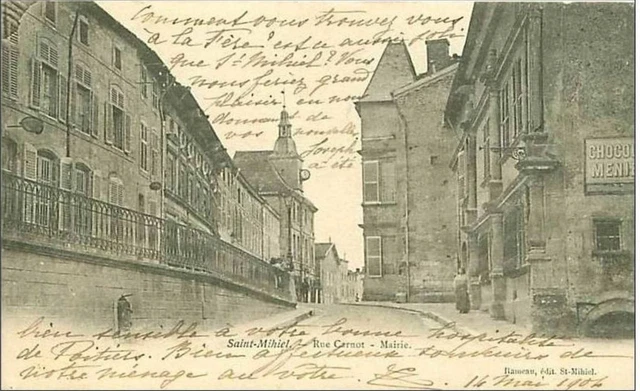 Comment vous trouvez vous
à la Fère est ce aussi joli
que St-Mihiel? Vous
nous feriez grand
plaisir en nous
donnant de
vos nouvelles
Joseph
a été
CHOCOL
MENI
bien sensible à votre bonne hospitalité
Saint-Mihiel. - Rue Carnot - Mairie.
de Poitiers. Bien affectueux souvenirs de
Rameau, édit. St-Mihiel.
notre ménage au vôtre
14 Mai 1904